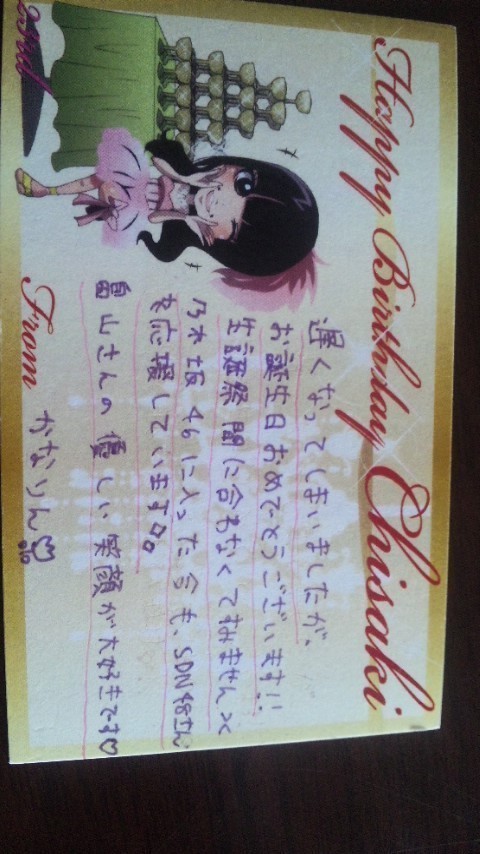 Happy Birthday Chisaki
23rd
遅くなってしまいましたが、
お誕生日おめでとうございます!!
生誕祭間に合わなくてすみません><
乃木坂46に入った今も、SDN48さん
を応援しています♡。
畠山さんの優しい笑顔が大好きです♡
From かなりん♡